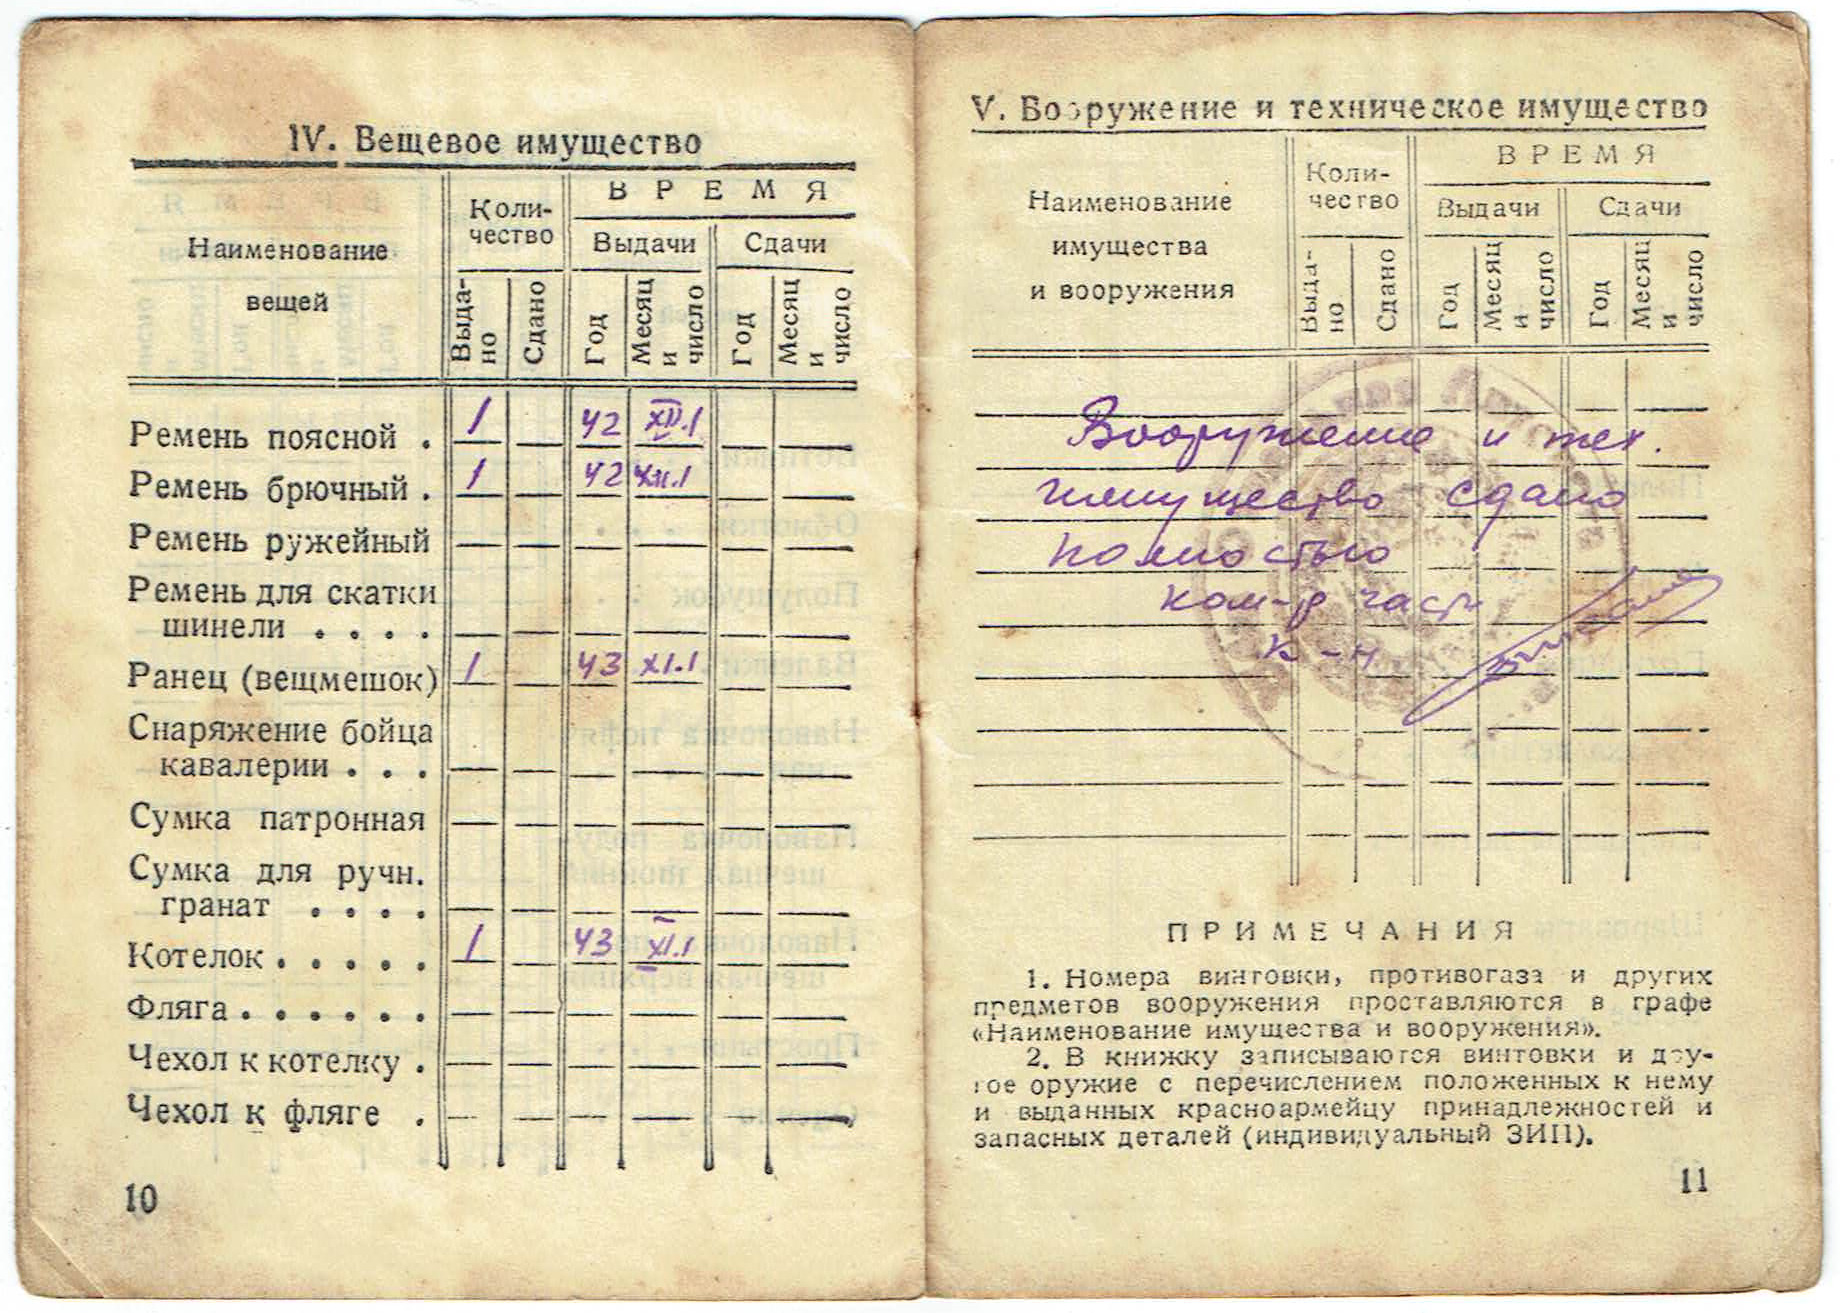 IV. Вещевое имущество
Наименование вещей
Количество
ВРЕМЯ
Выдачи
Сдачи
Выдано
Сдано
Год
Месяц и число
Год
Месяц и число
Ремень поясной . 1 42 XII.1
Ремень брючный . 1 42 XII.1
Ремень ружейный
Ремень для скатки
шинели . . . .
Ранец (вещмешок) 1 43 XI.1
Снаряжение бойца
кавалерии . . .
Сумка патронная
Сумка для ручн.
гранат . . . .
Котелок . . . . . 1 43 XI.1
Фляга . . . . . .
Чехол к котелку .
Чехол к фляге .
10
V. Вооружение и техническое имущество
Наименование
имущества
и вооружения
Коли-
чество
ВРЕМЯ
Выдачи
Сдачи
Выда-
но
Сдано
Год
Месяц
и
число
Год
Месяц
и
число
Вооружение и тех.
имущество сдано
полностью
ком-р части
к-н
ПРИМЕЧАНИЯ
1. Номера винтовки, противогаза и других
предметов вооружения проставляются в графе
«Наименование имущества и вооружения».
2. В книжку записываются винтовки и дру-
гое оружие с перечислением положенных к нему
и выданных красноармейцу принадлежностей и
запасных деталей (индивидуальный ЗИП).
11